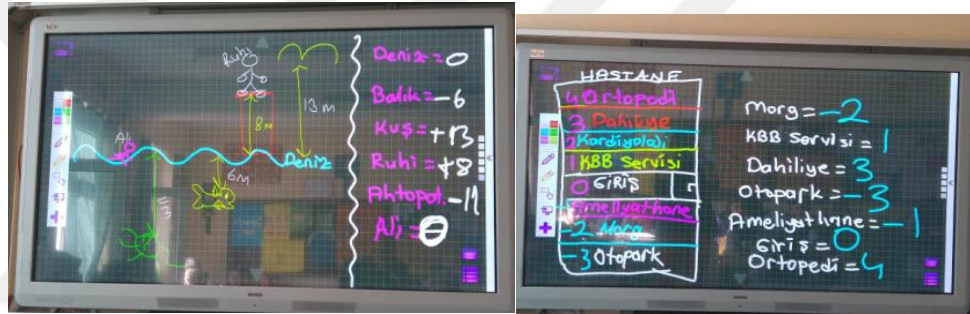 Ruhi
13 m
8m
Ali
Deniz
6m
Deniz = 0
Balık = -6
Kuş = +13
Ruhi = +8
Ahtapot. -11
Ali = 0
HASTANE
4 Ortopedi
3 Dahiliye
2 Kardiyoloji
1 KBB Servisi
0 GİRİŞ
-1 Ameliyathane
-2 Morg
-3 Otopark
Morg = -2
KBB Servisi = 1
Dahiliye = 3
Otopark = -3
Ameliyathane = -1
Giriş = 0
Ortopedi = 4